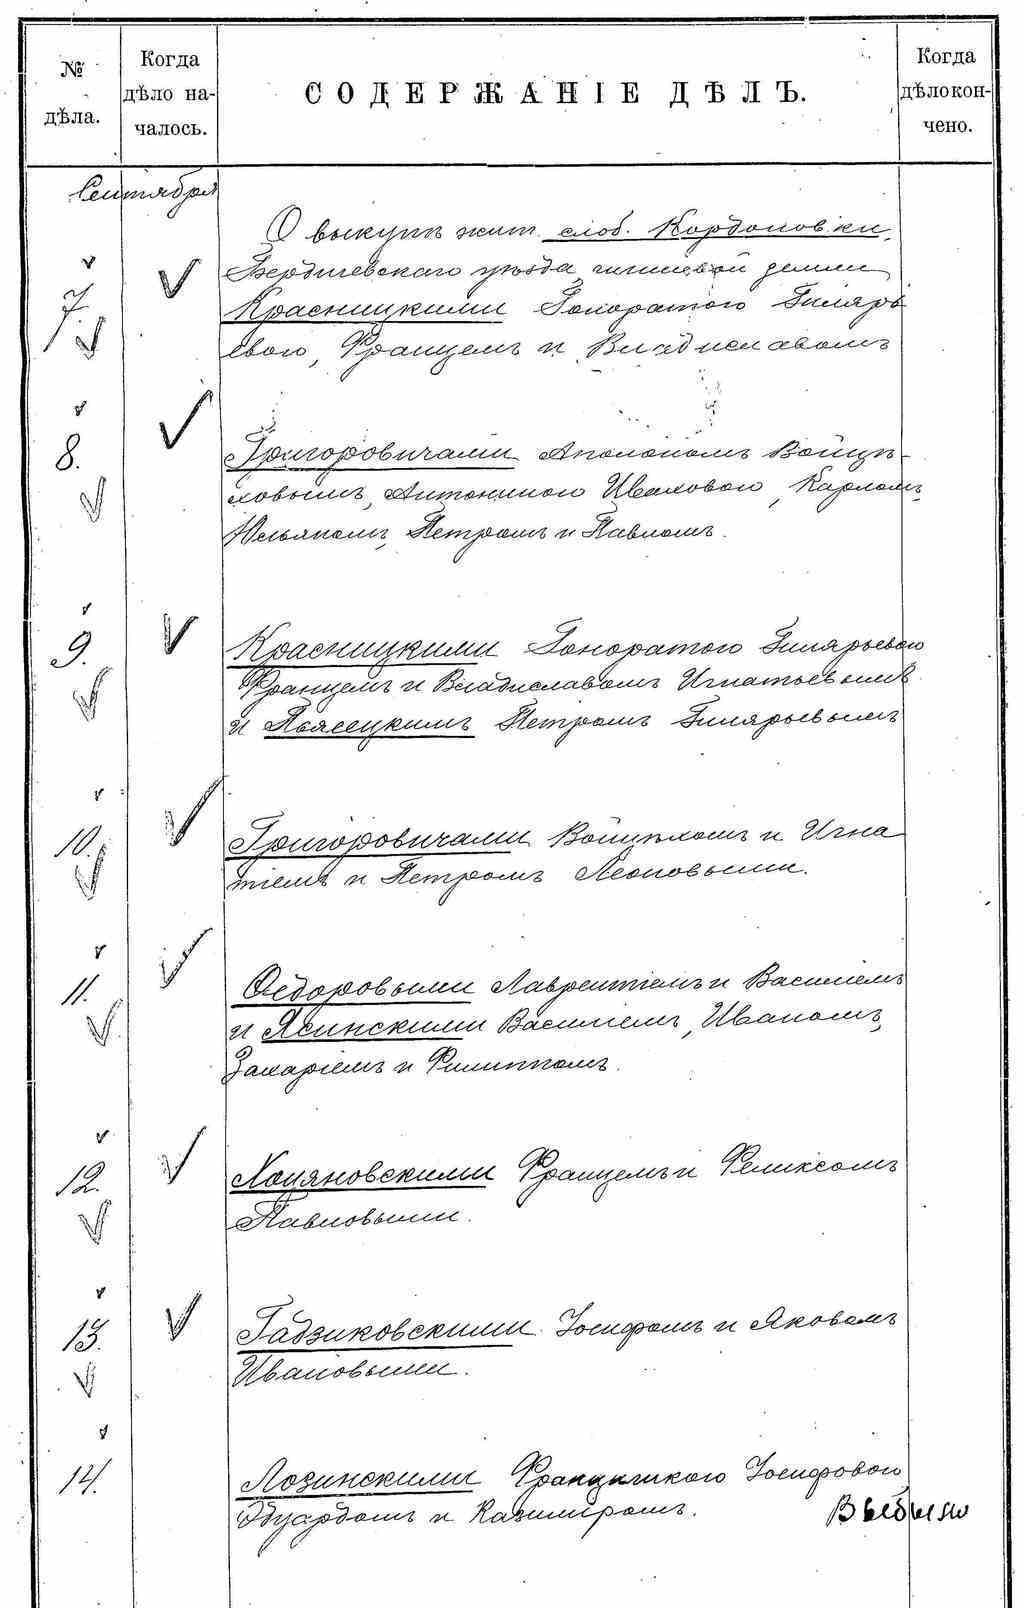 № дѣла.
Когда дѣло на-
чалось.
СОДЕРЖАНІЕ ДѢЛЪ.
Когда дѣло кон-
чено.
Сентября
О выкупѣ жит. слоб. Кордоновки,
7. Бердичевскаго уѣзда чиншевой земли
Красницкими Гоноратою Гиляръ
евою, Францемъ и Владиславомъ
8. Григоровичами Аполономъ Войцѣ-
ховымъ, Антониною Ивановою, Карломъ,
Юльяномъ, Петромъ и Павломъ.
9. Красницкими Гоноратою Гилярьевою
Францемъ и Владиславомъ Игнатьевыми
и Пьясецкимъ Петромъ Гилярьевымъ
10. Григоровичами Войцѣхомъ и Игна
тіемъ и Петромъ Леоновыми.
11. Ѳедоровыми Лаврентіемъ и Василіемъ
и Ясинскими Василіемъ, Иваномъ,
Захаріемъ и Филиппомъ.
12. Хоцяновскими Францемъ и Феликсомъ
Павловыми.
13. Гадзиковскими Іосифомъ и Яковомъ
Ивановыми.
14. Лозинскими Францишкою Іосифовою
Эдуардомъ и Казимиромъ.
Выбыло